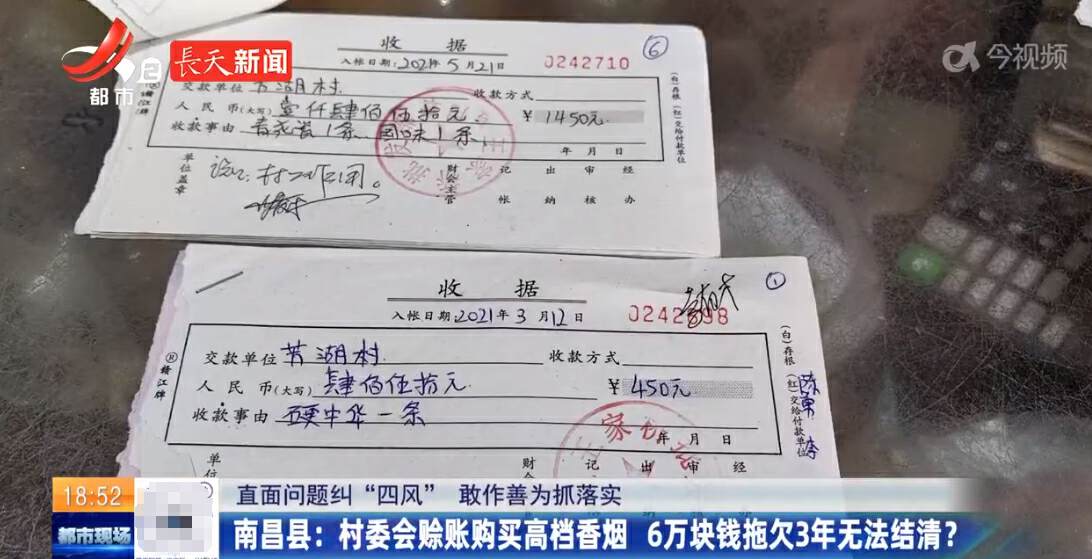 都市2
長天新闻
今视频
收 据
⑥
入帐日期:2021年5月21日
0242710
交款单位 芳湖村
收款方式
人民币(大写)壹仟肆佰伍拾元
¥1450元
收款事由
年 月 日
单位盖章
财会主管
记帐
出纳
审核
经办
(白)存根 (红)交给付款单位
收 据
①
入帐日期:2021年3月12日
交款单位 芳湖村
收款方式
人民币(大写)肆佰伍拾元
¥450元
收款事由 硬中华一条
年 月 日
赣江牌
单位
财会
记
出
审
经
(白)存根 (红)交给付款单位
18:52
直面问题纠“四风” 敢作善为抓落实
都市现场
南昌县:村委会赊账购买高档香烟 6万块钱拖欠3年无法结清?